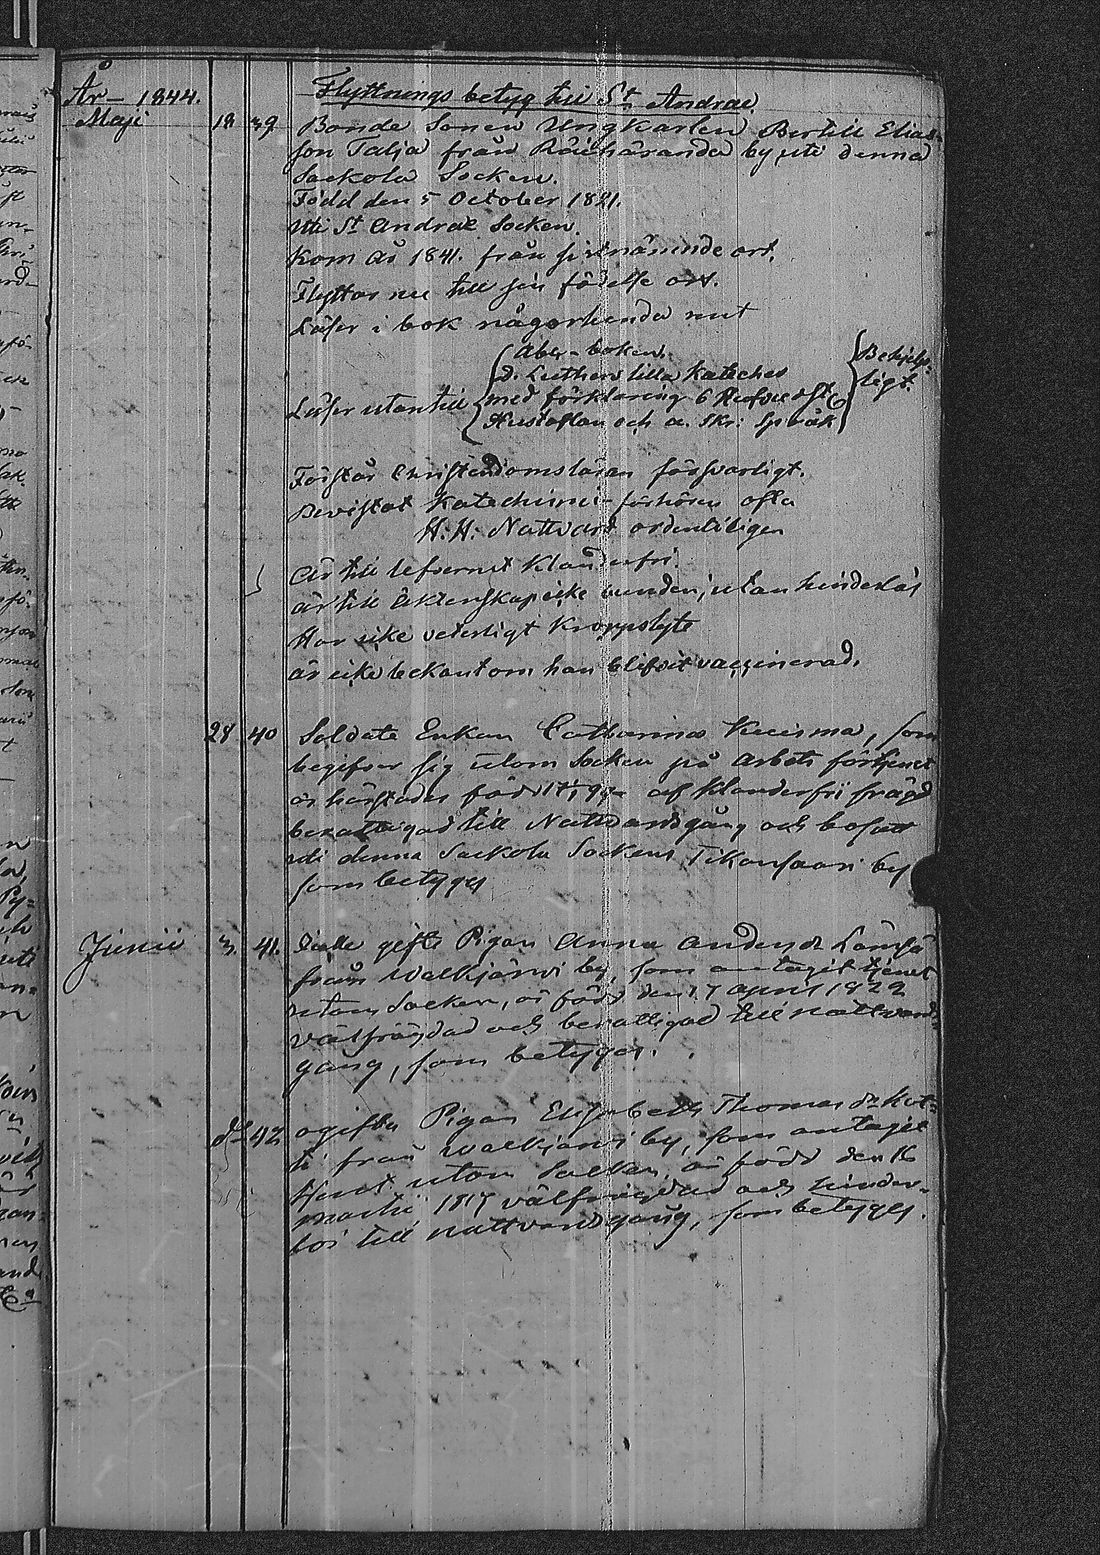 År 1844.
Flyttnings betyg till St Andrae
Maji 18 39 Bonde Sonen Ungkarlen Bertill Elias-
son Talja från Räihäranda by uti denna
Sackola Socken.
Född den 5 October 1821.
uti St Andrae Socken.
Kom år 1841. från sistnämnde ort.
Flyttar nu till sin födelse ort.
Läser i bok någorlunda rent
Aber-boken.
d. Luthers lilla Kateches
Läser utantill med förklaring
Hustaflan och a. Skr: Språk
Behjelp-
ligt.
Förstår Christendomsläran försvarligt.
Bevistat Katechismi-förhören ofta
H. H. Nattvard ordentligen
är till lefvernet Klanderfri.
är till äktenskap icke bunden, utan hinderlös
Har icke veterligt Kroppslyte
är icke bekant om han blifvit vaccinerad.
28 40 Soldats Enkan Catharina Kuisma, som
begifver sig utom Socken på Arbets förtjenst
är härstädes född af Klanderfri frägd
berättigad till Nattvardsgång och bosatt
uti denna Sackola Sockens Tikansaari by
som betygas
Junii 3. 41. gifta Pigan Anna Andersdr
från Walkjärvi by, som antagit tjenst
utom Socken, är född den 17 April 1822
välfrägdad och berättigad till nattvards-
gång, som betygas.
do 42 ogifta Pigan Elisabeth Thomasdr Kot-
ti från Walkjärvi by, som antagit
tjenst utom Socken, är född den 16
Martii 1817 välfrägdad och hinder-
lös till nattvardsgång, som betygas.